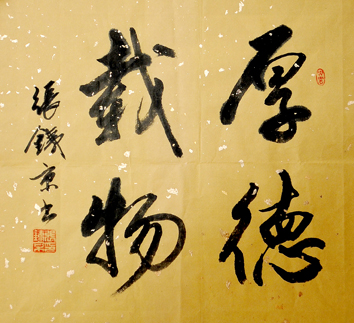 厚德
載物
張鐵京书